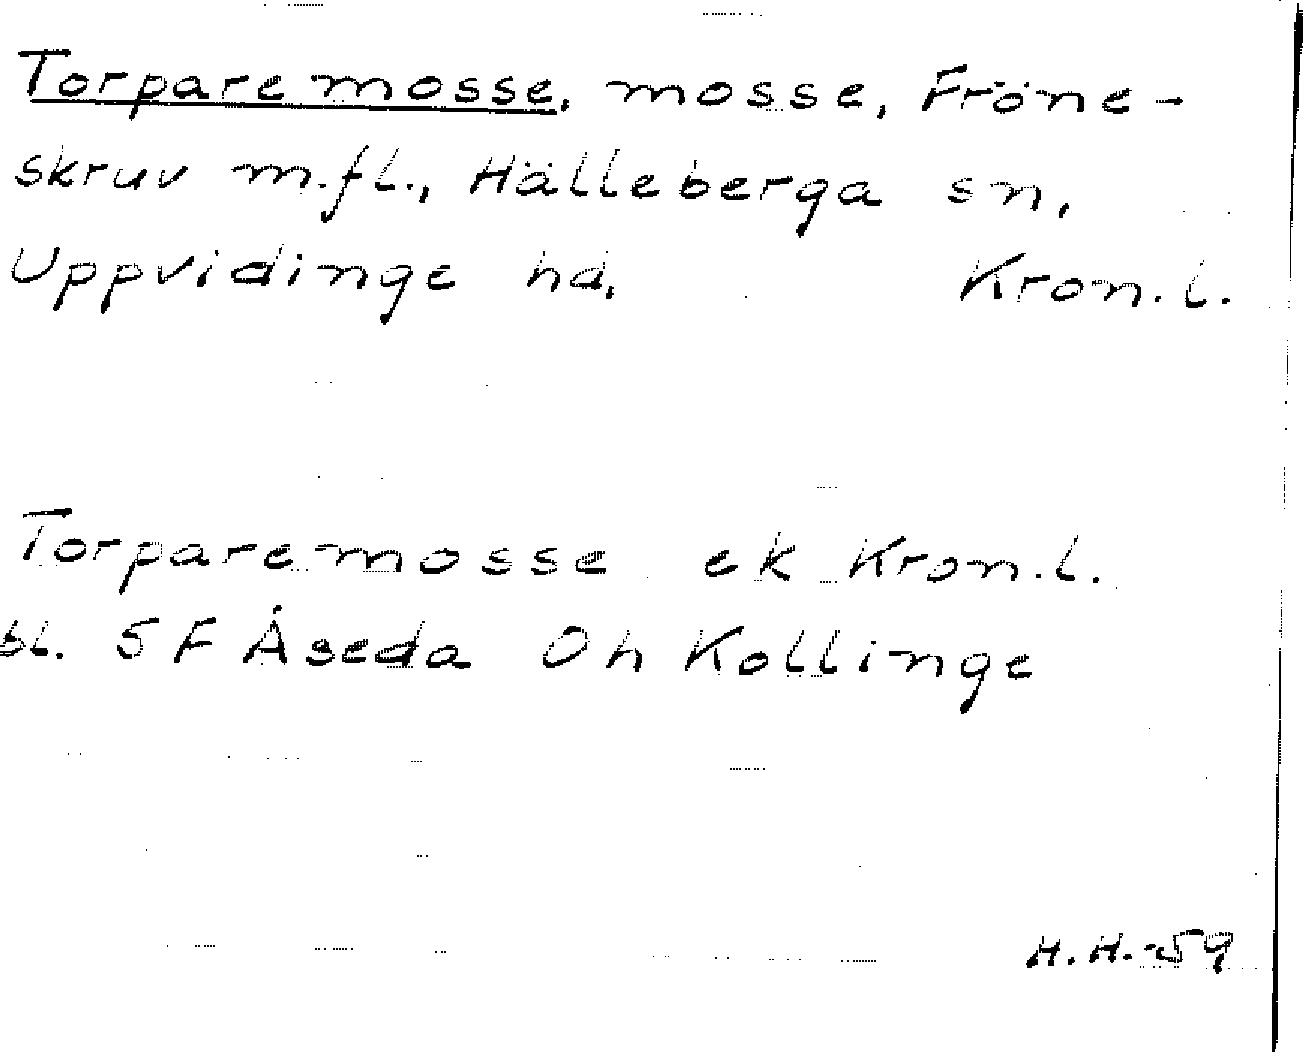 Torparemosse, mosse, Fröne-
skruv m.fl., Hälleberga sn,
Uppvidinge hd, Kron.l.
Torparemosse ek Kron.l.
bl. 5F Åseda Oh Kollinge
H.H.-59